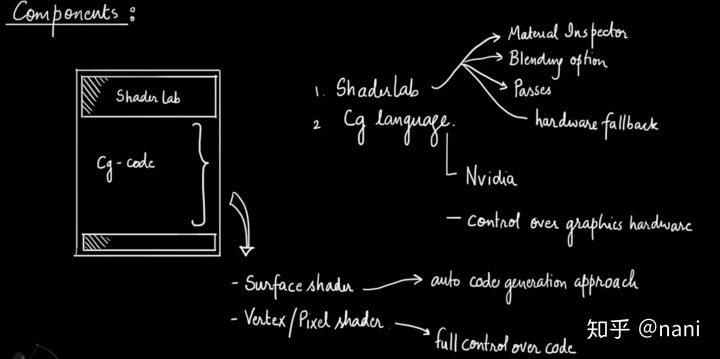 Components :
Shader Lab
Cg - code
1. ShaderLab
Material Inspector
Blending option
Passes
hardware fallback
2 Cg language.
Nvidia
- control over graphics hardware
- Surface shader
auto code generation approach
- Vertex/Pixel shader
full control over code
知乎 @nani